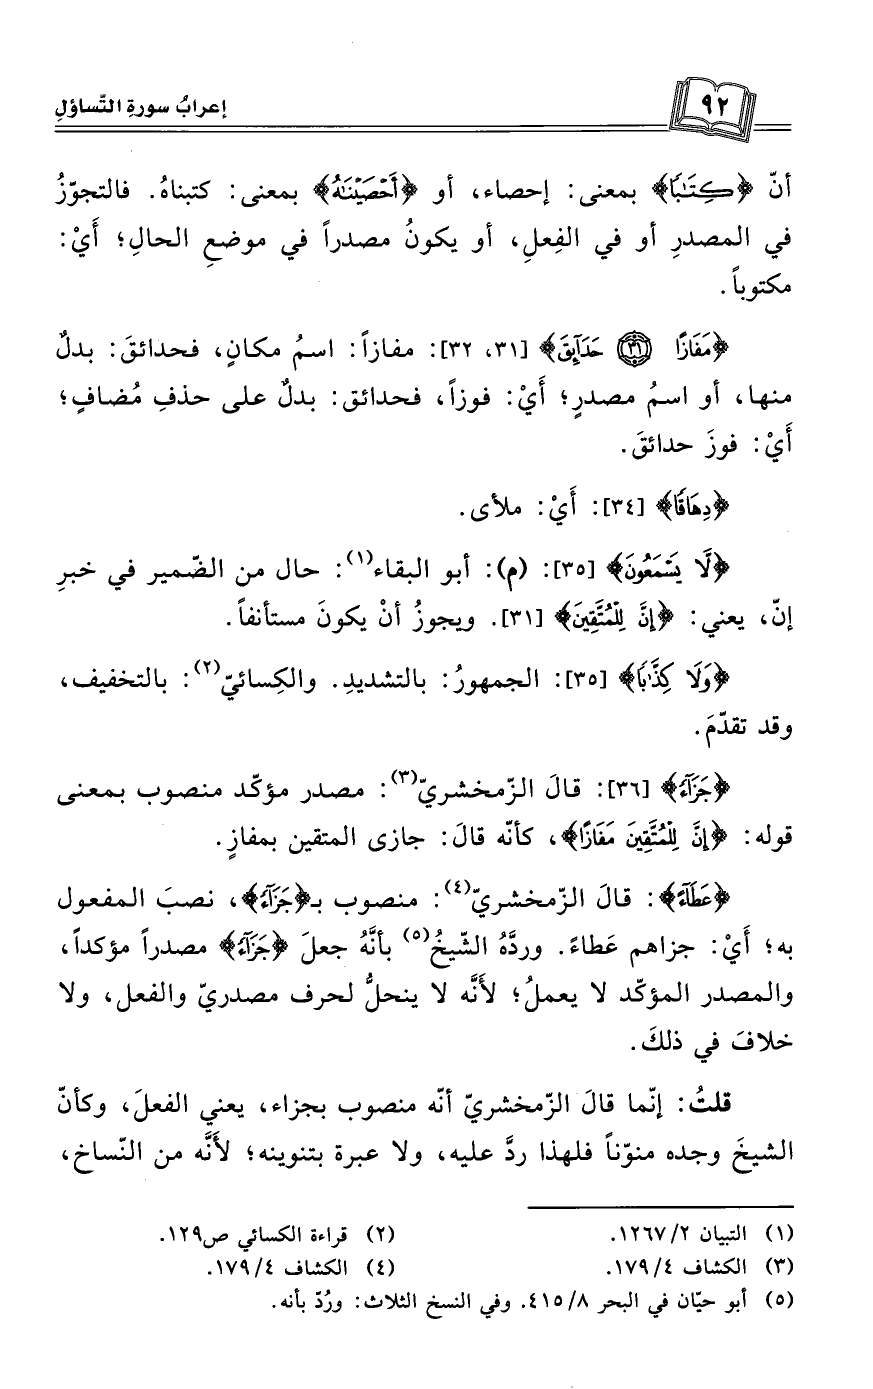 ٩٢
إعرابُ سورةِ التّساؤلِ
أنّ ﴿كِتَٰبًا﴾ بمعنى: إحصاء، أو ﴿أَحْصَيْنَٰهُ﴾ بمعنى: كتبناهُ. فالتجوّزُ
في المصدرِ أو في الفِعلِ، أو يكونُ مصدراً في موضعِ الحالِ؛ أَيْ:
مكتوباً.
﴿مَفَازًا ۝٣١ حَدَآئِقَ﴾ [٣١، ٣٢]: مفازاً: اسمُ مكانٍ، فحدائقَ: بدلٌ
منها، أو اسمُ مصدرٍ؛ أَيْ: فوزاً، فحدائق: بدلٌ على حذفِ مُضافٍ؛
أَيْ: فوزَ حدائقَ.
﴿دِهَاقًا﴾ [٣٤]: أَيْ: ملأى.
﴿لَّا يَسْمَعُونَ﴾ [٣٥]: (م): أبو البقاء(١): حال من الضّمير في خبرِ
إنّ، يعني: ﴿إِنَّ لِلْمُتَّقِينَ﴾ [٣١]. ويجوزُ أنْ يكونَ مستأنفاً.
﴿وَلَا كِذَّٰبًا﴾ [٣٥]: الجمهورُ: بالتشديدِ. والكِسائيّ(٢): بالتخفيف،
وقد تقدّمَ.
﴿جَزَآءً﴾ [٣٦]: قالَ الزّمخشريّ(٣): مصدر مؤكّد منصوب بمعنى
قوله: ﴿إِنَّ لِلْمُتَّقِينَ مَفَازًا﴾، كأنّه قالَ: جازى المتقين بمفازٍ.
﴿عَطَآءً﴾: قالَ الزّمخشريّ(٤): منصوب بـ﴿جَزَآءً﴾، نصبَ المفعول
به؛ أَيْ: جزاهم عَطاءً. وردَّهُ الشّيخُ(٥) بأنَّهُ جعلَ ﴿جَزَآءً﴾ مصدراً مؤكداً،
والمصدر المؤكّد لا يعملُ؛ لأنَّه لا ينحلُّ لحرف مصدريّ والفعل، ولا
خلافَ في ذلكَ.
قلتُ: إنّما قالَ الزّمخشريّ أنّه منصوب بجزاء، يعني الفعلَ، وكأنّ
الشيخَ وجده منوّناً فلهذا ردَّ عليه، ولا عبرة بتنوينه؛ لأنَّه من النّساخ،
(١) التبيان ١٢٦٧/٢.
(٢) قراءة الكسائي ص١٢٩.
(٣) الكشاف ١٧٩/٤.
(٤) الكشاف ١٧٩/٤.
(٥) أبو حيّان في البحر ٤١٥/٨. وفي النسخ الثلاث: ورُدّ بأنه.